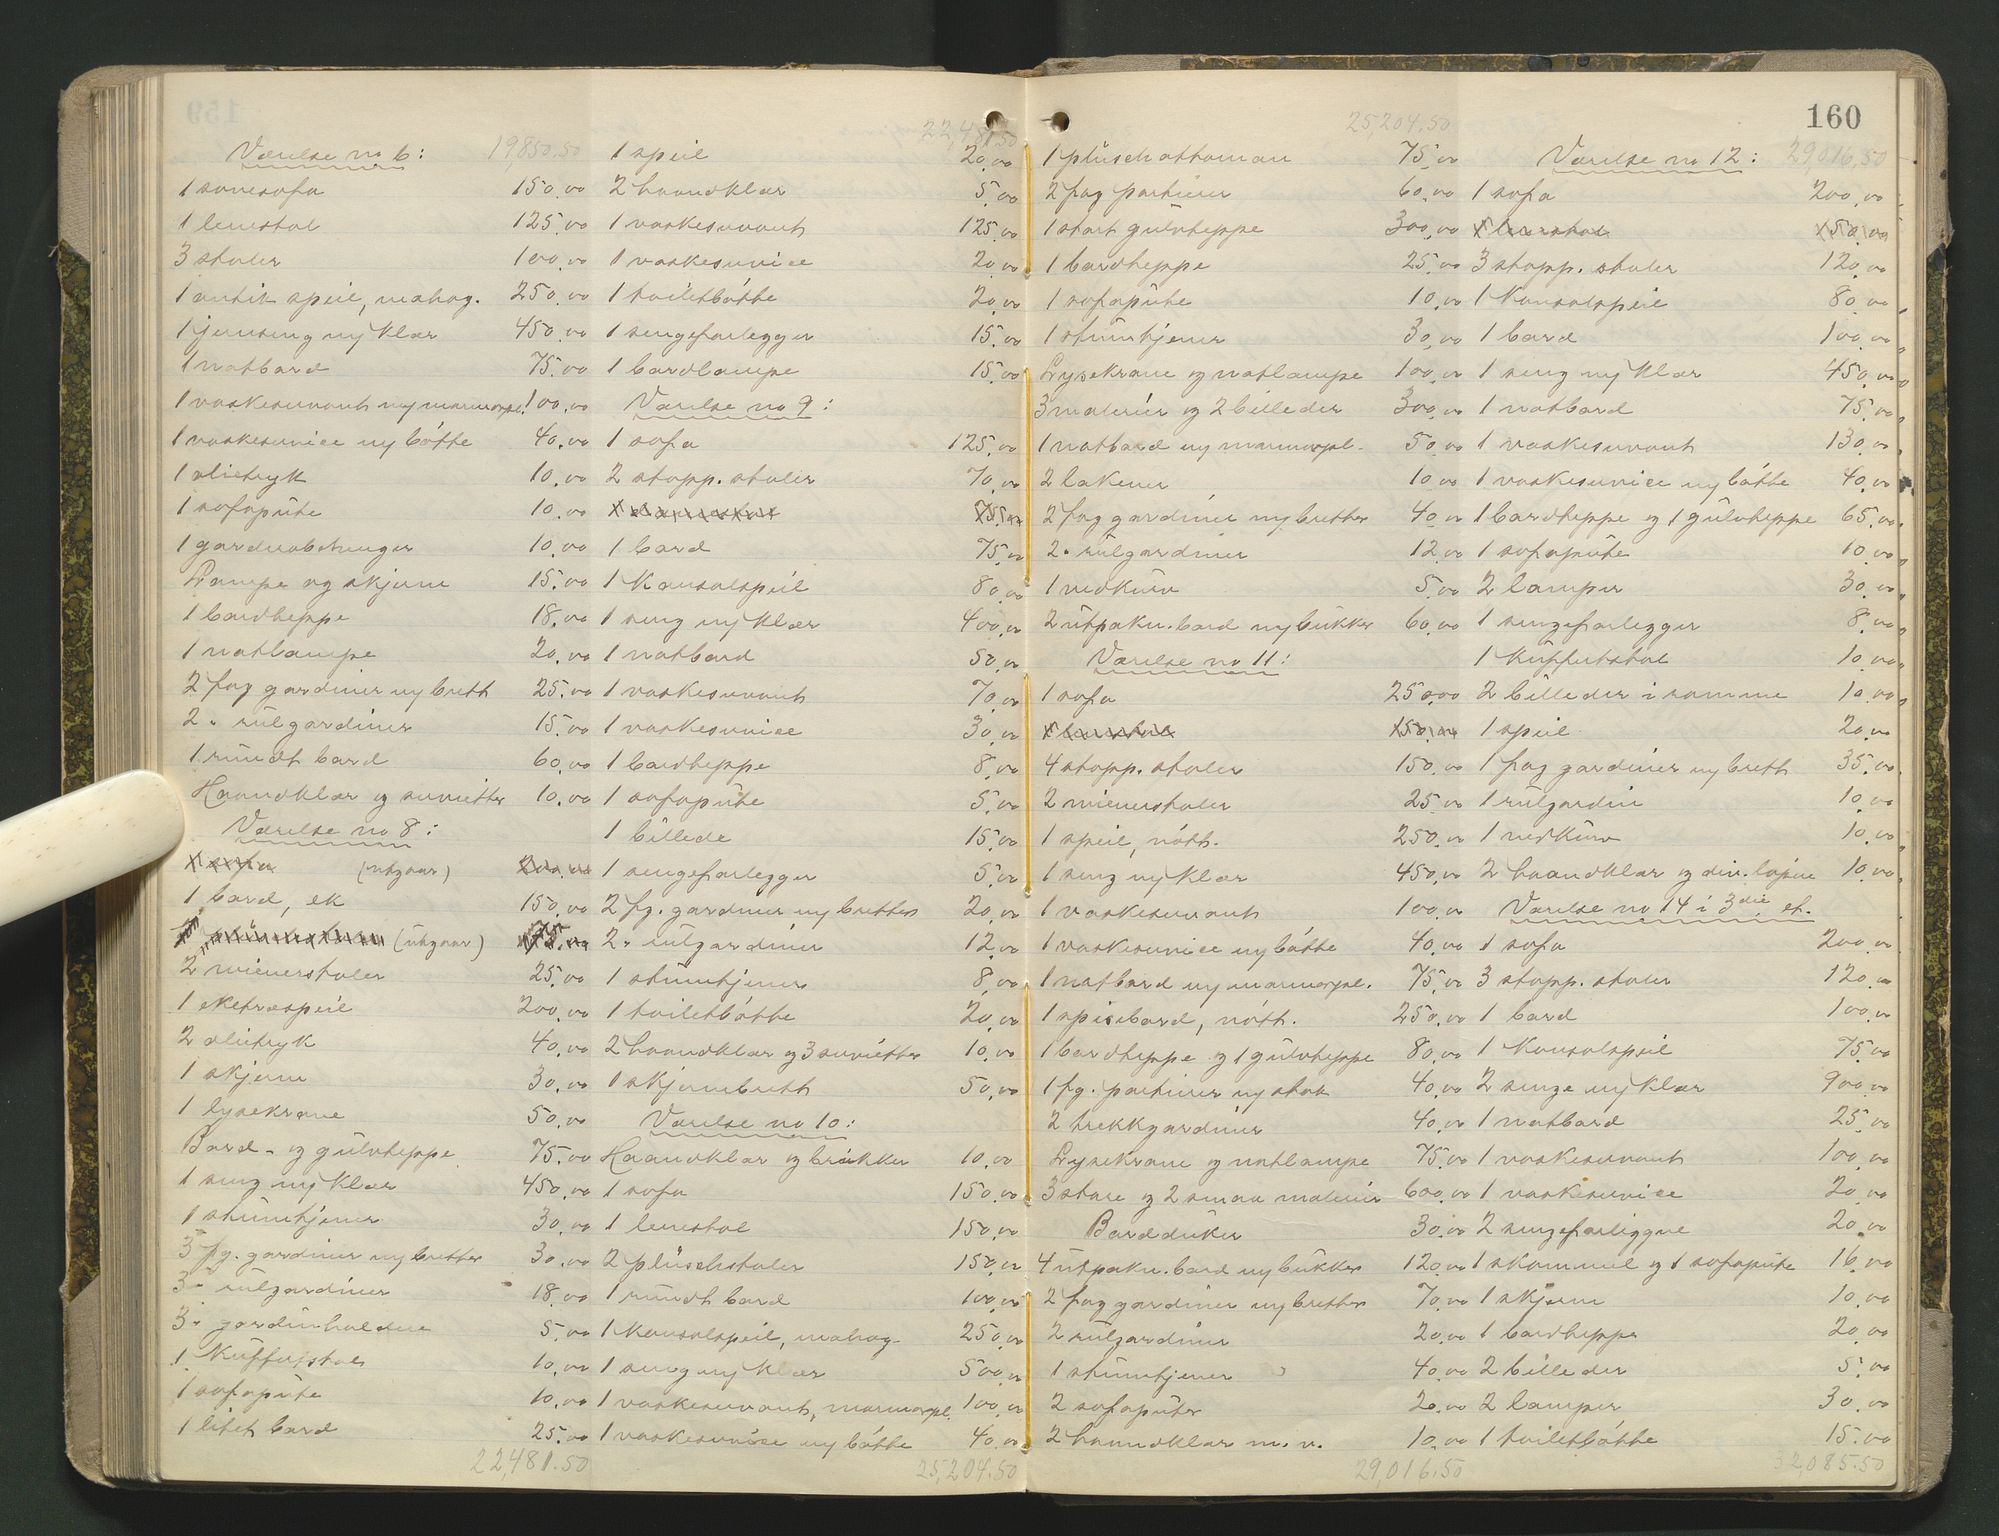 160
Værelse no 6:
19,850.50
1 sovesofa 150.00
1 lenestol 125.00
3 stoler 100.00
1 antik speil, mahog. 250.00
1 jernseng m/ klær 450.00
1 natbord 75.00
1 vaskeservant m/ marmorpl. 100.00
1 vaskeservice m/ bøtte 40.00
1 olietryk 10.00
1 sofapute 10.00
1 garderobehenger 10.00
Lampe og skjerm 15.00
1 bordteppe 18.00
1 natlampe 20.00
2 fag gardiner m/ brett 25.00
2 " rulgardiner 15.00
1 rundt bord 60.00
Haandklær og servietter 10.00
Værelse no 8:
1 sofa (utgaar)
1 bord, ek 150.00
(utgaar)
2 wienerstoler 25.00
1 eketræspeil 200.00
2 olietryk 40.00
1 skjerm 30.00
1 lysekrone 50.00
Bord- og gulvteppe 75.00
1 seng m/ klær 450.00
1 stumtjener 30.00
3 fg. gardiner m/ bretter 30.00
3 " rulgardiner 18.00
3 " gardinholdere 5.00
1 kuffertstol 10.00
1 sofapute 10.00
1 litet bord 25.00
22,481.50
22,481.50
1 speil 20.00
2 haandklær 5.00
1 vaskeservant 125.00
1 vaskeservice 20.00
1 toiletbøtte 20.00
1 sengeforlegger 15.00
1 bordlampe 15.00
Værelse no 9:
1 sofa 125.00
2 stopp. stoler 70.00
75.00
1 bord 75.00
1 konsolspeil 80.00
1 seng m/ klær 400.00
1 natbord 50.00
1 vaskeservant 70.00
1 vaskeservice 30.00
1 bordteppe 8.00
1 sofapute 5.00
1 billede 15.00
1 sengeforlegger 5.00
2 fg. gardiner m/ bretter 20.00
2 " rulgardiner 12.00
1 stumtjener 8.00
1 toiletbøtte 20.00
2 haandklær og 3 servietter 10.00
1 skjermbrett 50.00
Værelse no 10:
Haandklær og brikker 10.00
1 sofa 150.00
1 lenestol 150.00
2 plüschstoler 150.00
1 rundt bord 100.00
1 konsolspeil, mahog. 250.00
1 seng m/ klær 500.00
1 vaskeservant, marmorpl. 100.00
1 vaskeservice m/ bøtte 40.00
25,204.50
25,204.50
1 plüschottoman 75.00
2 fag portierer 60.00
1 stort gulvteppe 300.00
1 bordteppe 25.00
1 sofapute 10.00
1 stumtjener 30.00
Lysekrone og natlampe 100.00
3 malerier og 2 billeder 300.00
1 natbord m/ marmorpl. 50.00
2 lakener 10.00
2 fag gardiner m/ bretter 40.00
2 " rulgardiner 12.00
1 vedkurv 5.00
2 utpakn. bord m/ bukker 60.00
Værelse no 11:
1 sofa 250.00
1 lenestol 150.00
4 stopp. stoler 150.00
2 wienerstoler 25.00
1 speil, nøtt. 250.00
1 seng m/ klær 450.00
1 vaskeservant 100.00
1 vaskeservice m/ bøtte 40.00
1 natbord m/ marmorpl. 75.00
1 spisebord, nøtt. 250.00
1 bordteppe og 1 gulvteppe 80.00
1 fg. portierer m/ stok 40.00
2 trekkgardiner 40.00
Lysekrone og natlampe 75.00
3 store og 2 smaa malerier 600.00
Bordduker 30.00
4 utpakn. bord m/ bukker 120.00
2 fag gardiner m/ bretter 70.00
2 rulgardiner 20.00
1 stumtjener 40.00
2 sofaputer 20.00
2 haandklær m. v. 10.00
29,016.50
Værelse no 12:
29,016.50
1 sofa 200.00
1 lenestol 150.00
3 stopp. stoler 120.00
1 konsolspeil 80.00
1 bord 100.00
1 seng m/ klær 450.00
1 natbord 75.00
1 vaskeservant 130.00
1 vaskeservice m/ bøtte 40.00
1 bordteppe og 1 gulvteppe 65.00
1 sofapute 10.00
2 lamper 30.00
1 sengeforlegger 8.00
1 kuffertstol 10.00
2 billeder i ramme 10.00
1 speil 20.00
1 fag gardiner m/ brett 35.00
1 rulgardin 10.00
1 vedkurv 10.00
2 haandklær og div. løpere 10.00
Værelse no 14 i 3die et.
1 sofa 200.00
3 stopp. stoler 120.00
1 bord 100.00
1 konsolspeil 75.00
2 senge m/ klær 900.00
1 natbord 25.00
1 vaskeservant 100.00
1 vaskeservice 20.00
2 sengeforliggere 20.00
1 skammel og 1 sofapute 16.00
1 skjerm 10.00
1 bordteppe 20.00
2 billeder 5.00
2 lamper 30.00
1 toiletbøtte 15.00
32,085.50